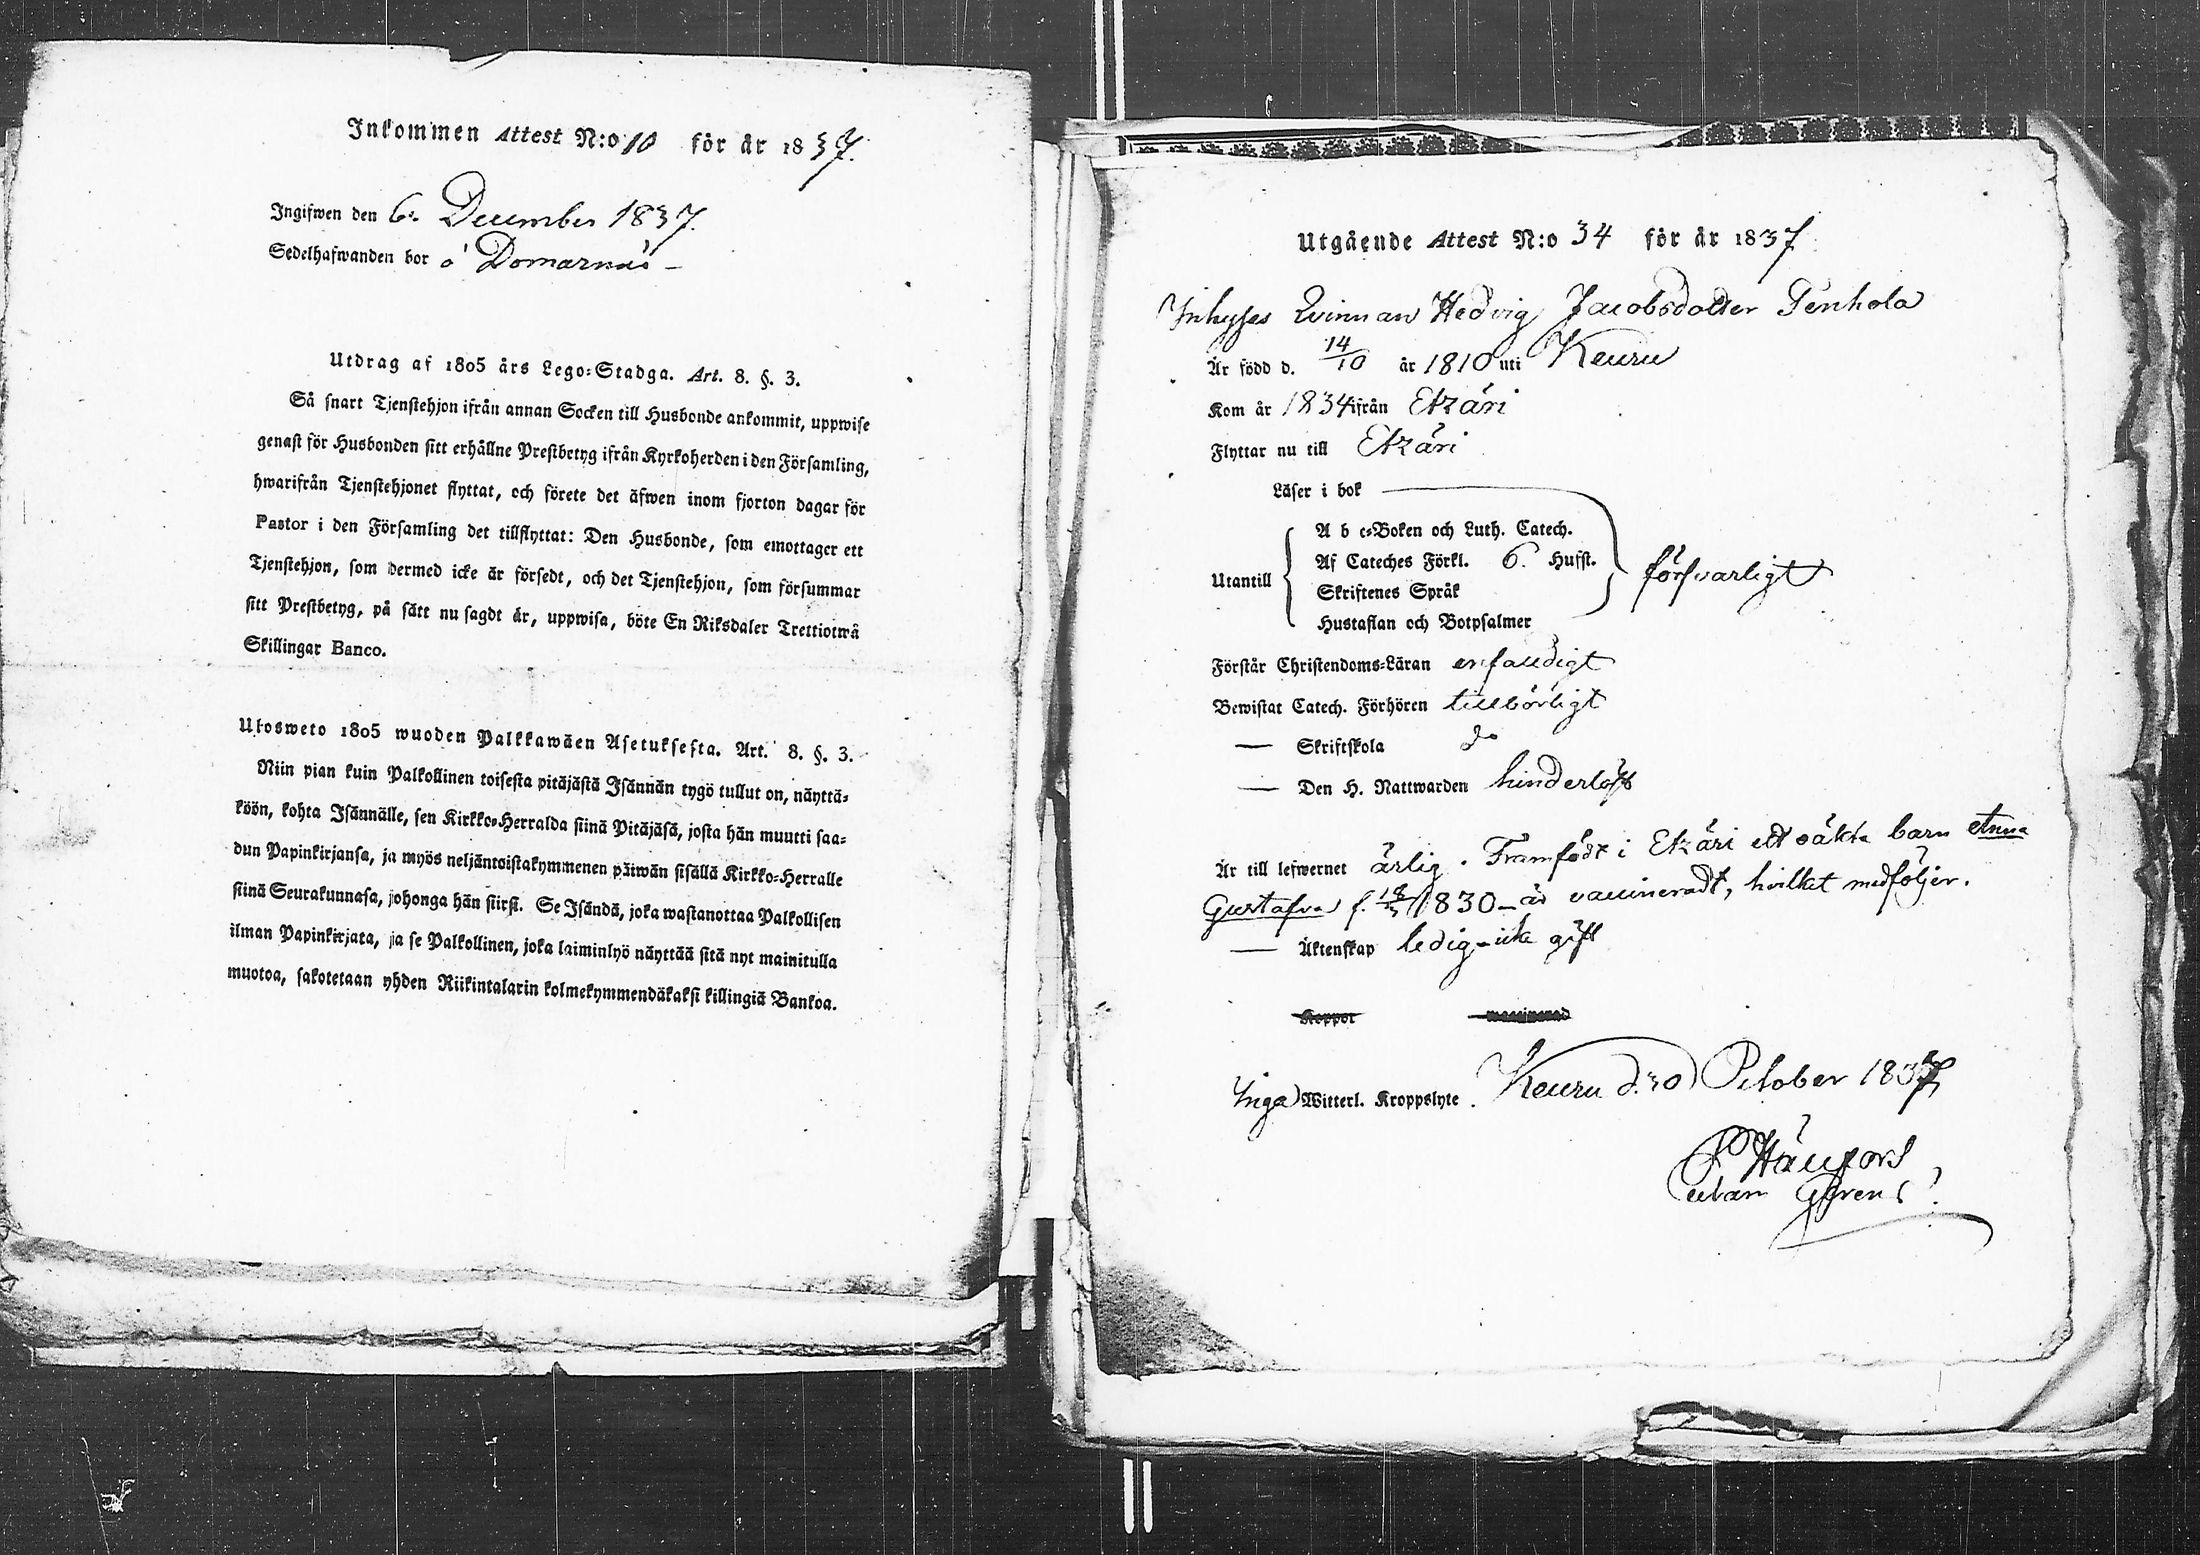 Inkommen Attest N:o 10 för år 1837.
Ingifwen den 6. December 1837.
Sedelhafwanden bor å Domarnäs
Utdrag af 1805 års Lego-Stadga. Art. 8. §. 3.
Så snart Tjenstehjon ifrån annan Socken till Husbonde ankommit, uppwise
genast för Husbonden sitt erhållne Prestbetyg ifrån Kyrkoherden i den Församling,
hwarifrån Tjenstehjonet flyttat, och förete det äfwen inom fjorton dagar för
Pastor i den Församling det tillflyttat: Den Husbonde, som emottager ett
Tjenstehjon, som dermed icke är försedt, och det Tjenstehjon, som försummar
sitt Prestbetyg, på sätt nu sagdt är, uppwisa, böte En Riksdaler Trettiotwå
Skillingar Banco.
Ulosweto 1805 wuoden Palkkawäen Asetuksesta. Art. 8. §. 3.
Niin pian kuin Palkollinen toisesta pitäjästä Isännän tygö tullut on, näyttä-
köön, kohta Isännälle, sen Kirkko-Herralda siinä Pitäjäsä, josta hän muutti saa-
dun Papinkirjansa, ja myös neljäntoistakymmenen päiwän sisällä Kirkko-Herralle
siinä Seurakunnasa, johonga hän siirsi. Se Isändä, joka wastanottaa Palkollisen
ilman Papinkirjata, ja se Palkollinen, joka laiminlyö näyttää sitä nyt mainitulla
muotoa, sakotetaan yhden Riikintalarin kolmekymmendäkaksi killingiä Bankoa.
Utgående Attest N:o 34 för år 1837
Inhyses Qvinnan Hedvig Jacobsdotter Tenhola
Är född d. 14/10 år 1810 uti Keuru
Kom år 1834 ifrån Etzäri
Flyttar nu till Etzäri
Läser i bok
A b c-Boken och Luth. Catech.
Utantill Af Cateches Förkl. 6. Hufst. försvarligt
Skriftenes Språk
Hustaflan och Botpsalmer
Förstår Christendoms-Läran enfaldigt
Bewistat Catech. Förhören tillbörligt
— Skriftskola do
— Den H. Nattwarden hinderlöst
Är till lefwernet ärlig. Framfödt i Etzäri ett oäkta barn Anna
Gustafva f. 1830 – är vaccineradt, hvilket medföljer.
— Äktenskap ledig – icke gift
Koppor vaccinerad
Inga Witterl. Kroppslyte. Keuru d. 30 October 1837